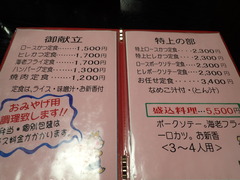 御献立
ロースかつ定食……1,500円
ヒレかつ定食……1,700円
海老フライ定食……1,700円
ハンバーグ定食……1,200円
焼肉定食……1,200円
定食は、ライス・味噌汁・お新香付
おみやげ用
調理致します!!
特上の部
特上ロースかつ定食……2,300円
特上ヒレかつ定食……2,300円
ロースポークソテー定食……2,300円
ヒレポークソテー定食……2,300円
お任せ定食……3,400円
なめこ汁付・(とん汁)
盛込料理……5,500円
ポークソテー。海老フ
一口カツ。お新香
<3〜4人用>